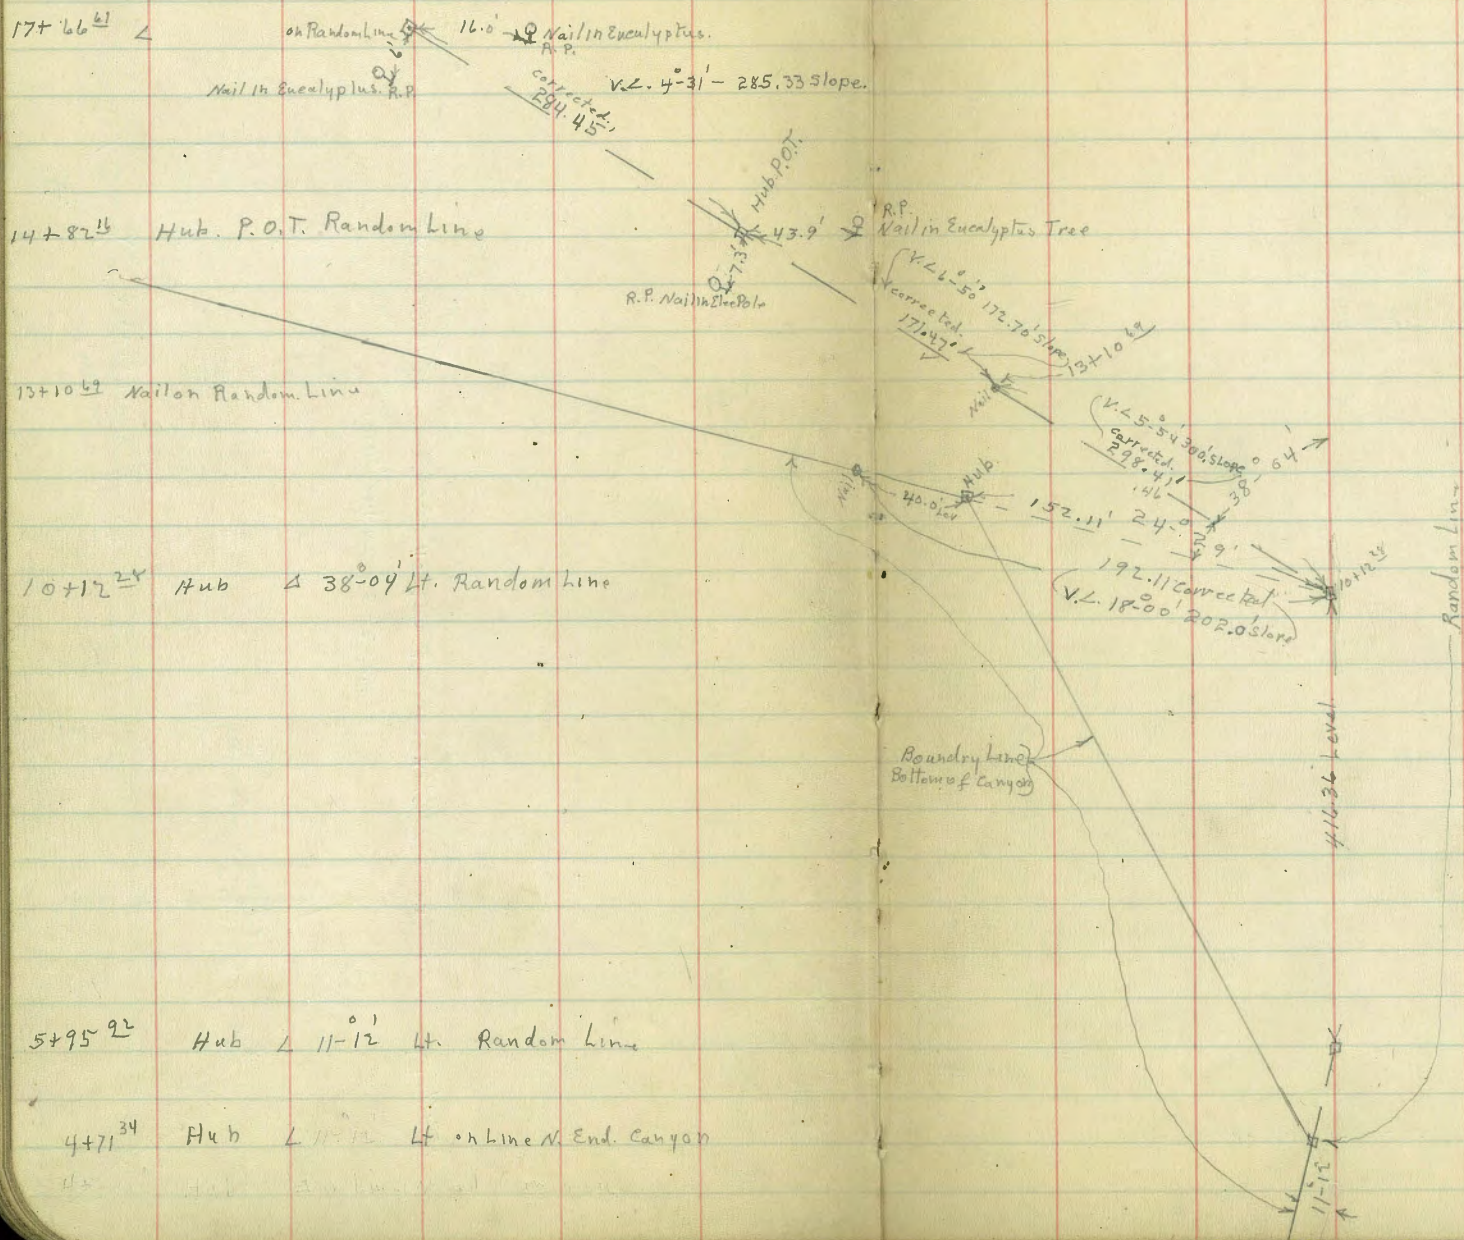 17+66 61 ∠
on Random Line
16.0'
Nail in Eucalyptus.
R.P.
Nail in Eucalyplus. R.P.
corrected
284.45'
V.∠. 4°-31' - 285.33 Slope.
14+82 16 Hub. P.O.T. Random Line
Hub P.O.T.
43.9'
R.P.
Nail in Eucalyptus Tree
7.3'
R.P. Nail in Elec Pole
V.∠ 6°-50' 172.70' Slope
corrected.
171.47'
13+10 69
Nail
13+10 69 Nail on Random Line
V.∠ 5°-54' 300' slope
corrected.
298.41'
.46
38° 04'
Nail
40.0' Lev
Hub
152.11'
24°
29'
192.11 Corrected
V.∠. 18°-00' 202.0' slope
10+12 28
10+12 28 Hub ∆ 38°-04' Lt. Random Line
Random Line
416.36 Level
Boundry Line
Bottom of Canyon
5+95 92 Hub ∠ 11°-12' Lt. Random Line
4+71 34 Hub ∠ 11°-12' Lt on Line N. End. Canyon
11°-12'